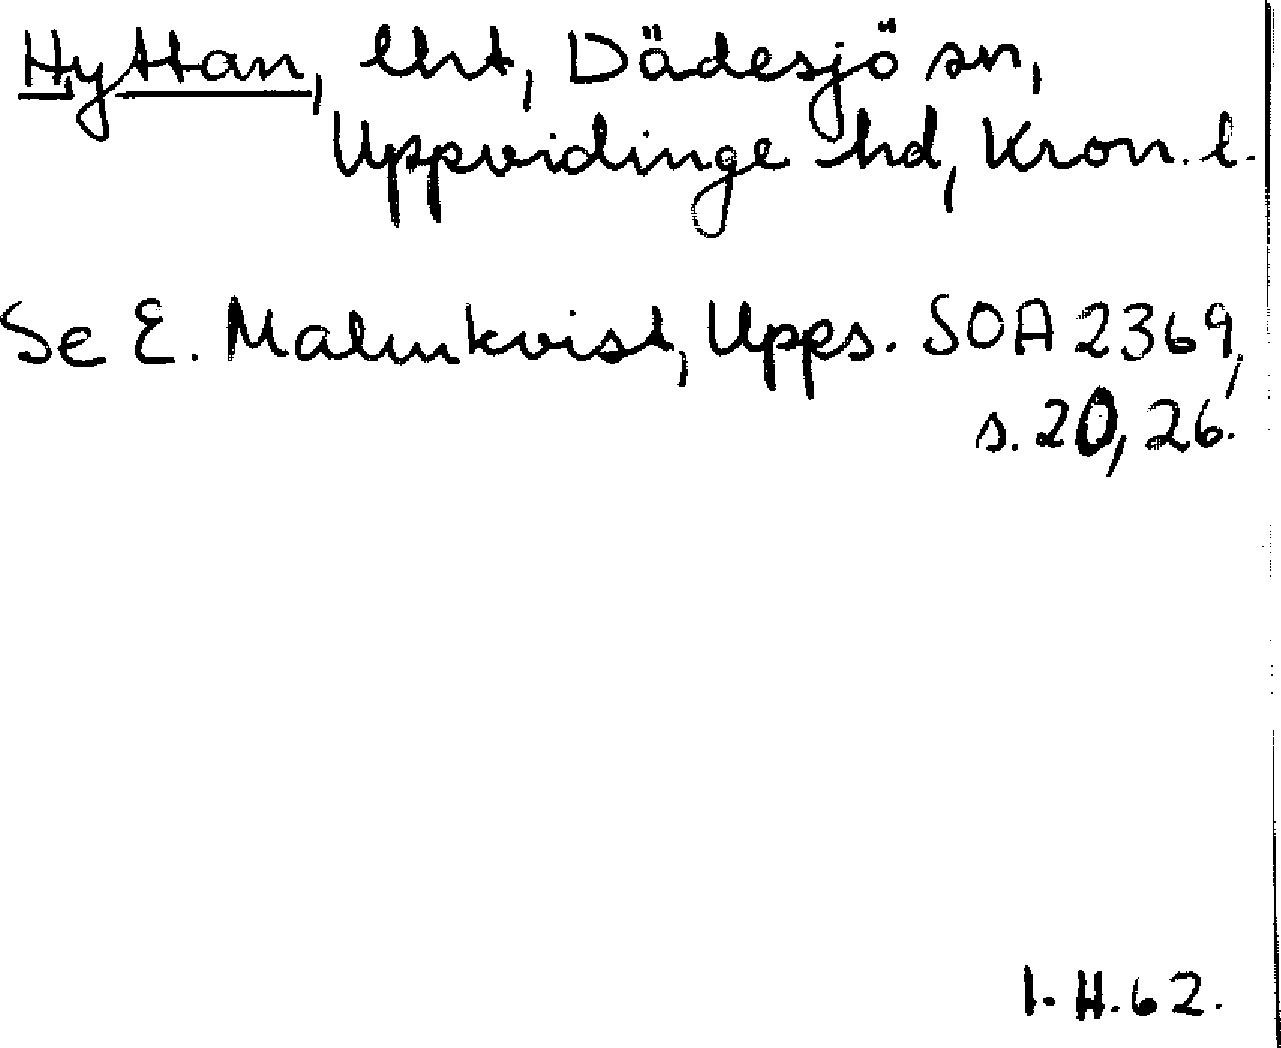 Hyttan, lht, Dädesjö sn,
Uppvidinge hd, Kron. l.
Se E. Malmkvist, Upps. SOA 2369,
s. 20, 26.
I. H. 62.